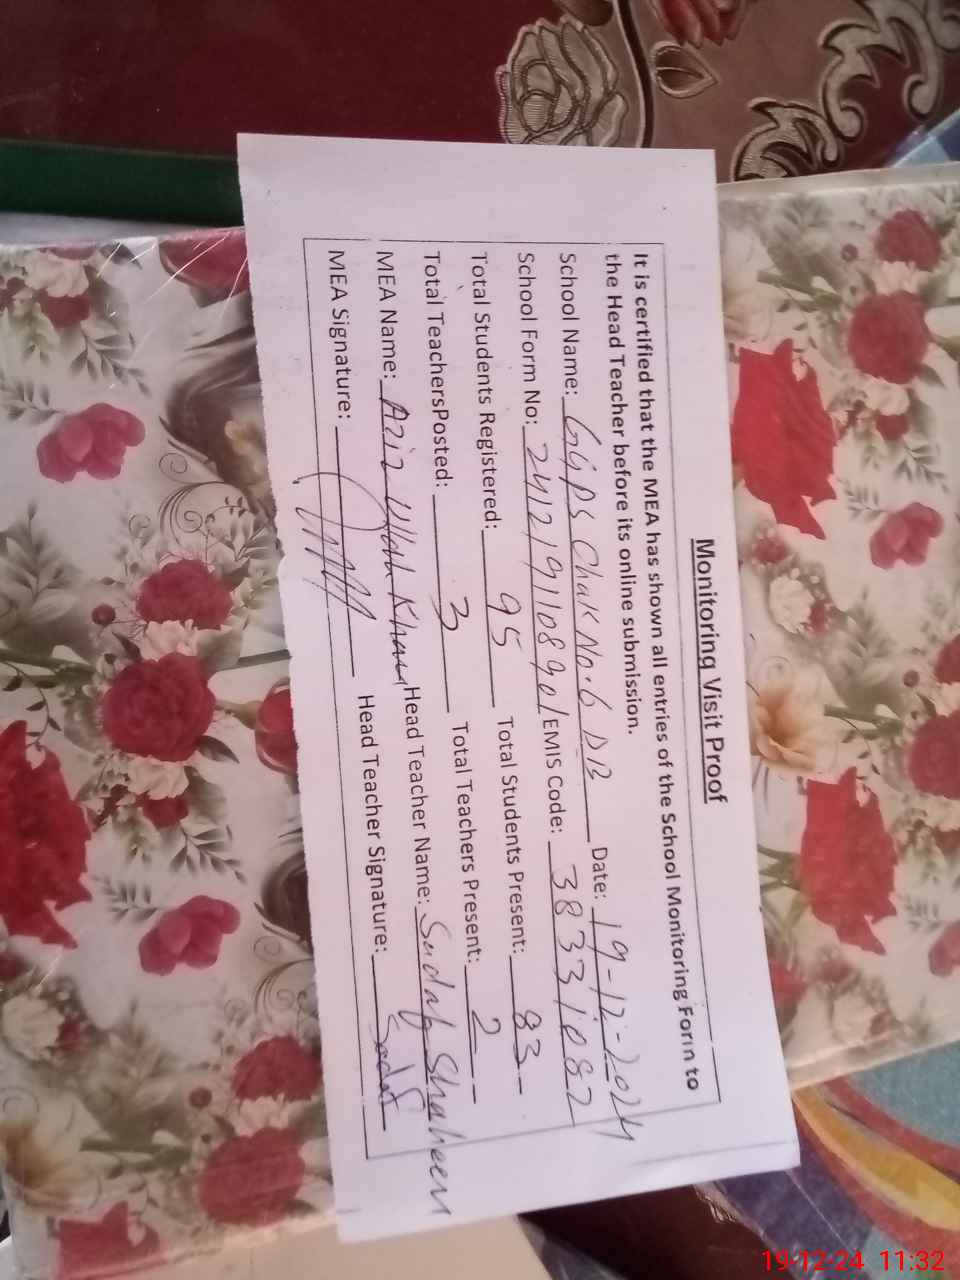 Monitoring Visit Proof
It is certified that the MEA has shown all entries of the School Monitoring Form to
the Head Teacher before its online submission.
School Name: GGPS Chak No.6 DB Date: 19-12-2024
School Form No: 2412191108901 EMIS Code: 38331082
Total Students Registered: 95 Total Students Present: 83
Total TeachersPosted: 3 Total Teachers Present: 2
MEA Name: Aziz Ullah Khan Head Teacher Name: Sadaf Shaheen
MEA Signature: Head Teacher Signature: Sadaf
19-12-24 11:32